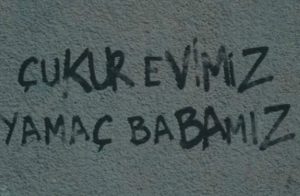 ÇUKUR EVİMİZ
YAMAÇ BABAMIZ